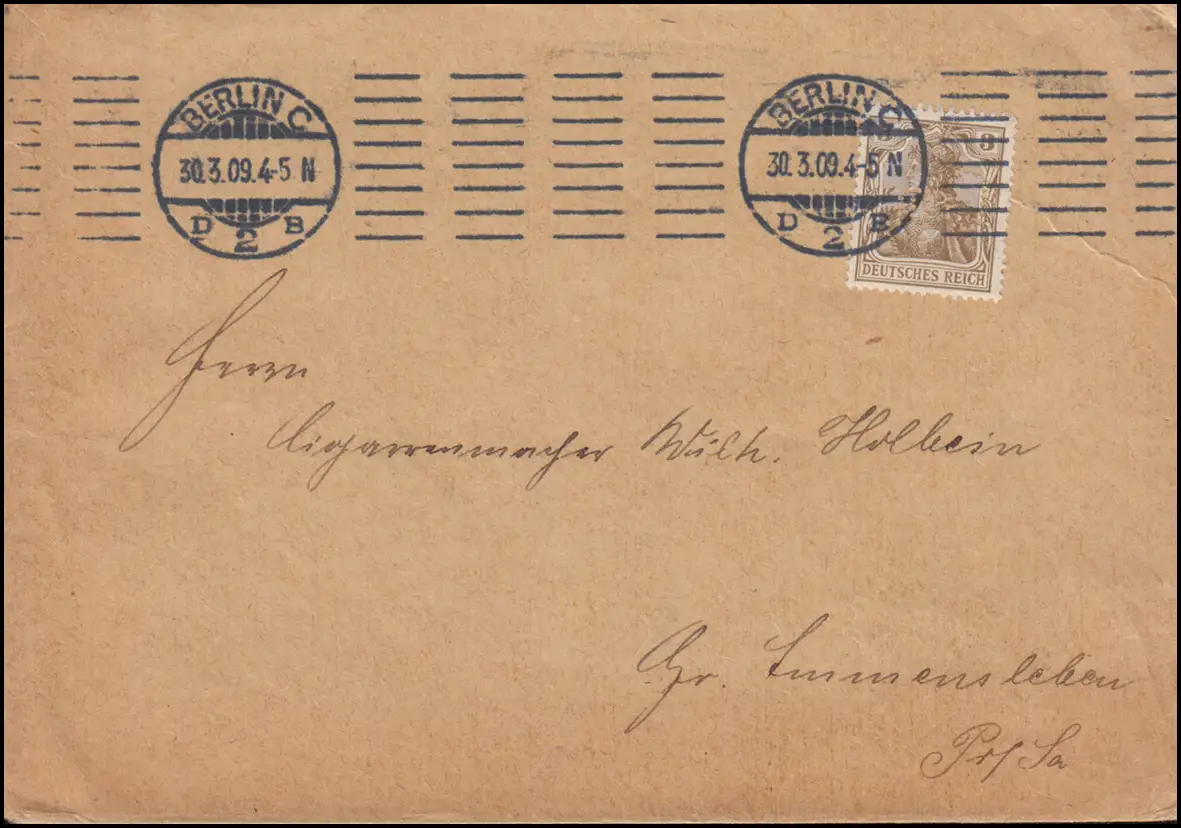 BERLIN C
30.3.09.4-5 N
D 2 B
BERLIN C
30.3.09.4-5 N
D 2 B
3
DEUTSCHES REICH
Herrn
Cigarrenmacher Wilh. Holbein
Gr. Emmensleben
Pr/ Sa